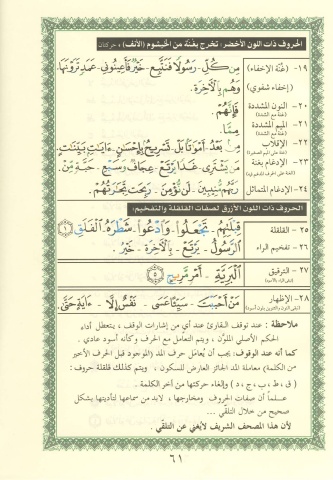 الحروف ذات اللون الأخضر: تخرج بغنّة من الخيشوم (الأنف) ، حركتان
١٩- (غنّة الإخفاء) مِن كُلِّ. رَسُولًا فَنَتَّبِعَ. خَيْرٌ فَأَعِينُونِي. عَمَدٍ تَرَوْنَهَا.
(إخفاء شفوي) وَهُم بِالْآخِرَةِ.
٢٠- النون المشددة فَإِنَّهُمْ.
(غنّة مع الشدة)
٢١- الميم المشددة مِمَّا.
(غنّة مع الشدة)
٢٢- الإقلاب مِنْ بَعْدُ.
٢٣- الإدغام بغنة مَن يَشْتَرِي. غَدًا يَرْتَعْ. عِجَافٌ وَسَبْعِ. حَبَّةٍ مِّنْ.
٢٤- الإدغام المتماثل رَبُّهُم مُّنِيبِينَ. لَن نُّؤْمِنَ. رَبِحَت تِّجَارَتُهُمْ.
الحروف ذات اللون الأزرق لصفات القلقلة والتفخيم:
٢٥- القلقلة قَبْلِهِمْ. تَجْعَلُوا. وَادْعُوا. شَطْرَهُ. الْفَلَقِ ١
٢٦- تفخيم الراء الرَّسُولُ. يَرْتَعْ. بِالْآخِرَةِ. خَيْرٌ.
٢٧- الترقيق الْبَرِيَّةِ. أَمْرٍ مَّرِيجٍ
٢٨- الإظهار مَنْ أَحْبَبْتَ. شَيْئًا عَسَى. نَفْسٌ إِلَّا. ءَايَةٍ حَتَّى
ملاحظة : عند توقف القارئ عند أي من إشارات الوقف ، يتعطل أداء
الحكم الأصلي الملوّن ، ويتم التعامل مع الحرف وكأنه أسود عادي .
كما أنه عند الوقوف: يجب أن يُعامل حرف المد (الموجود قبل الحرف الأخير
من الكلمة) معاملة المد الجائز العارض للسكون ، ويتم كذلك قلقلة حروف :
( ق ، ط ، ب ، ج ، د ) وإلغاء حركتها من آخر الكلمة .
علـمـاً أن صفات الحروف ومخارجها ، لابد من سماعها لتأديتها بشكل
صحيح من خلال التلقّي ...
لأن هذا المصحف الشريف لايُغني عن التلقّي .
٦١